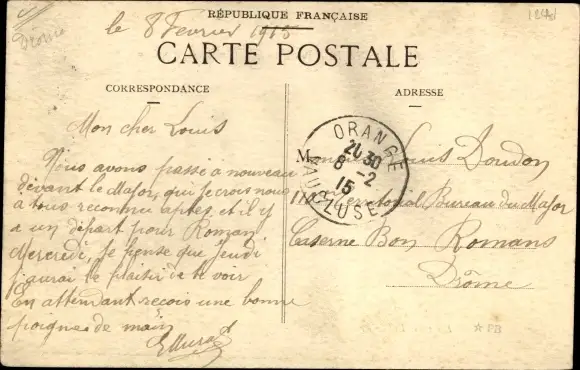 Drôme
le 8 Fevrier 1915
RÉPUBLIQUE FRANÇAISE
CARTE POSTALE
CORRESPONDANCE
ADRESSE
Mon cher Louis
Nous avons passé a nouveau
devant le Major, qui je crois nous
a tous reconnu aptes, et il y
a un départ pour Romans
Mercredi, Je pense que jeudi
j'aurai le plaisir de te voir
En attendant recois une bonne
poignée de main
ORANGE
20 30
8 -2
15
VAUCLUSE
M Louis Doudon
Territorial Bureau du Major
Caserne Bon Romans
Drôme